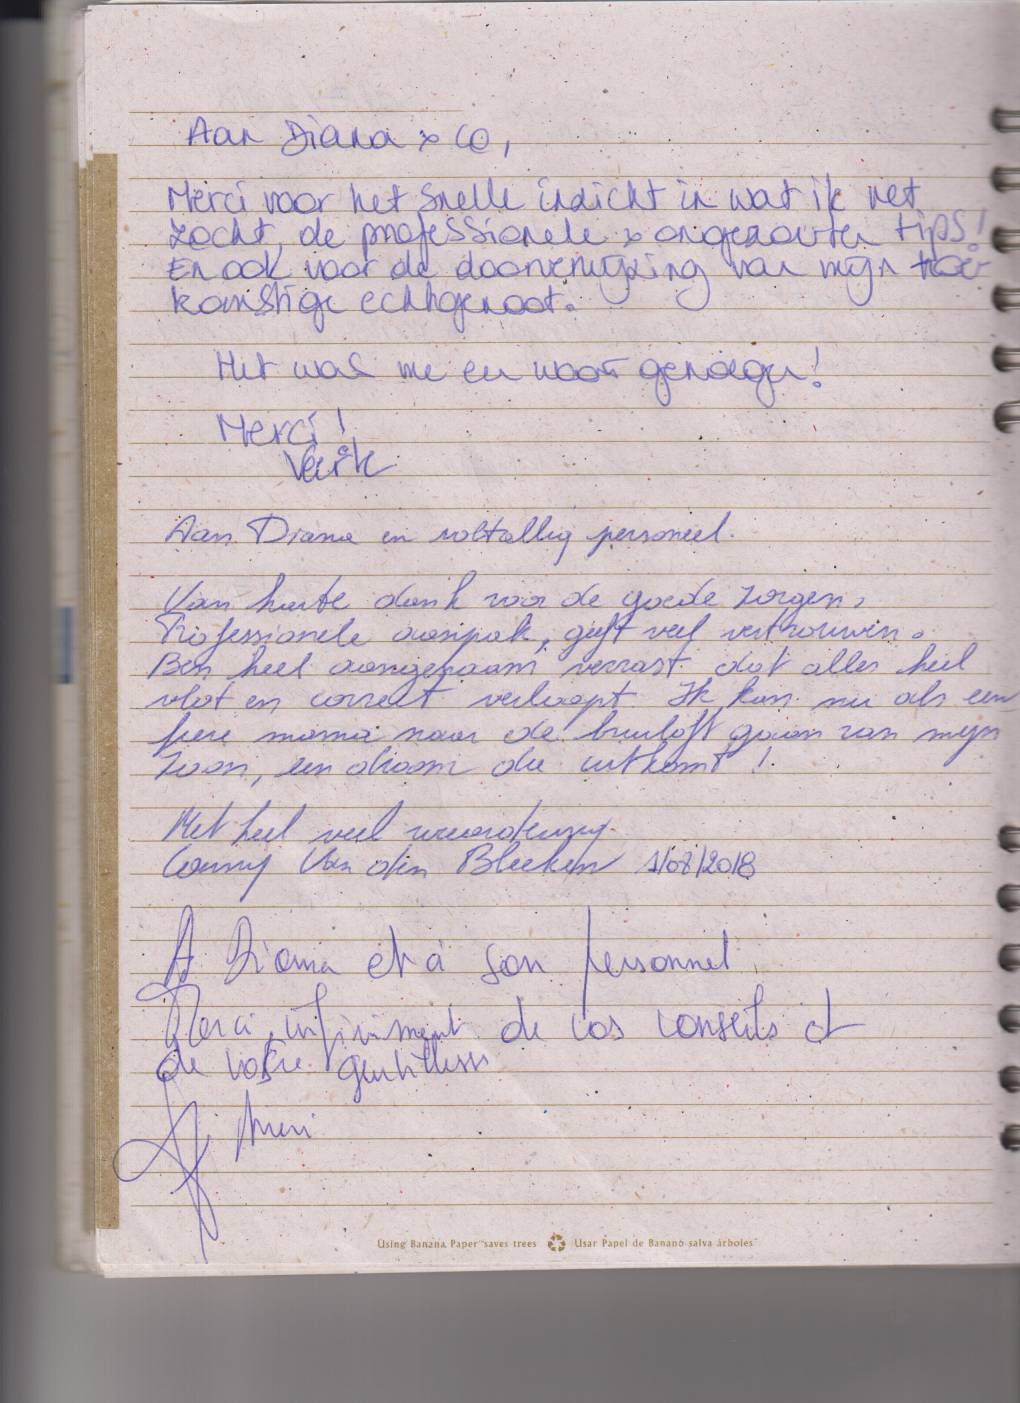 Aan Diana & Co,
Merci voor het snelle inzicht in wat ik net
zocht, de professionele & ongezouten tips!
En ook voor de doorverwijzing van mijn toe-
komstige echtgenoot.
Het was me een waar genoegen!
Merci!
Aan Diana en voltallig personeel.
Van harte dank voor de goede zorgen,
Professionele aanpak, geeft veel vertrouwen.
Ben heel aangenaam verrast dat alles heel
vlot en correct verloopt. Ik kan nu als een
fiere mama naar de bruiloft gaan van mijn
zoon, een droom die uitkomt!
Met heel veel waardering
Conny Van den Bleeken 1/08/2018
A Diana et à son personnel
Merci infiniment de vos conseils et
de votre gentillesse
Using Banana Paper saves trees Usar Papel de Banano salva árboles